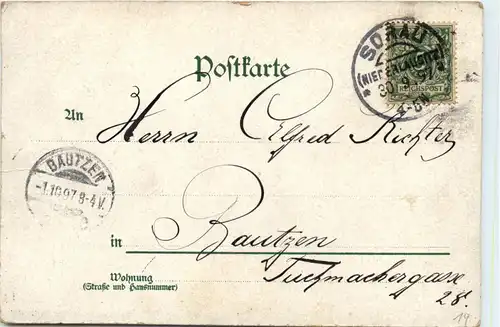 SORAU
(NIEDERLAUSITZ)
30.9.97
REICHSPOST
Postkarte
An
Herrn Alfred Richter
BAUTZEN
-1.10.97.8-4V.
in
Bautzen
Tuchmachergasse
28.
Wohnung
(Straße und Hausnummer)
19